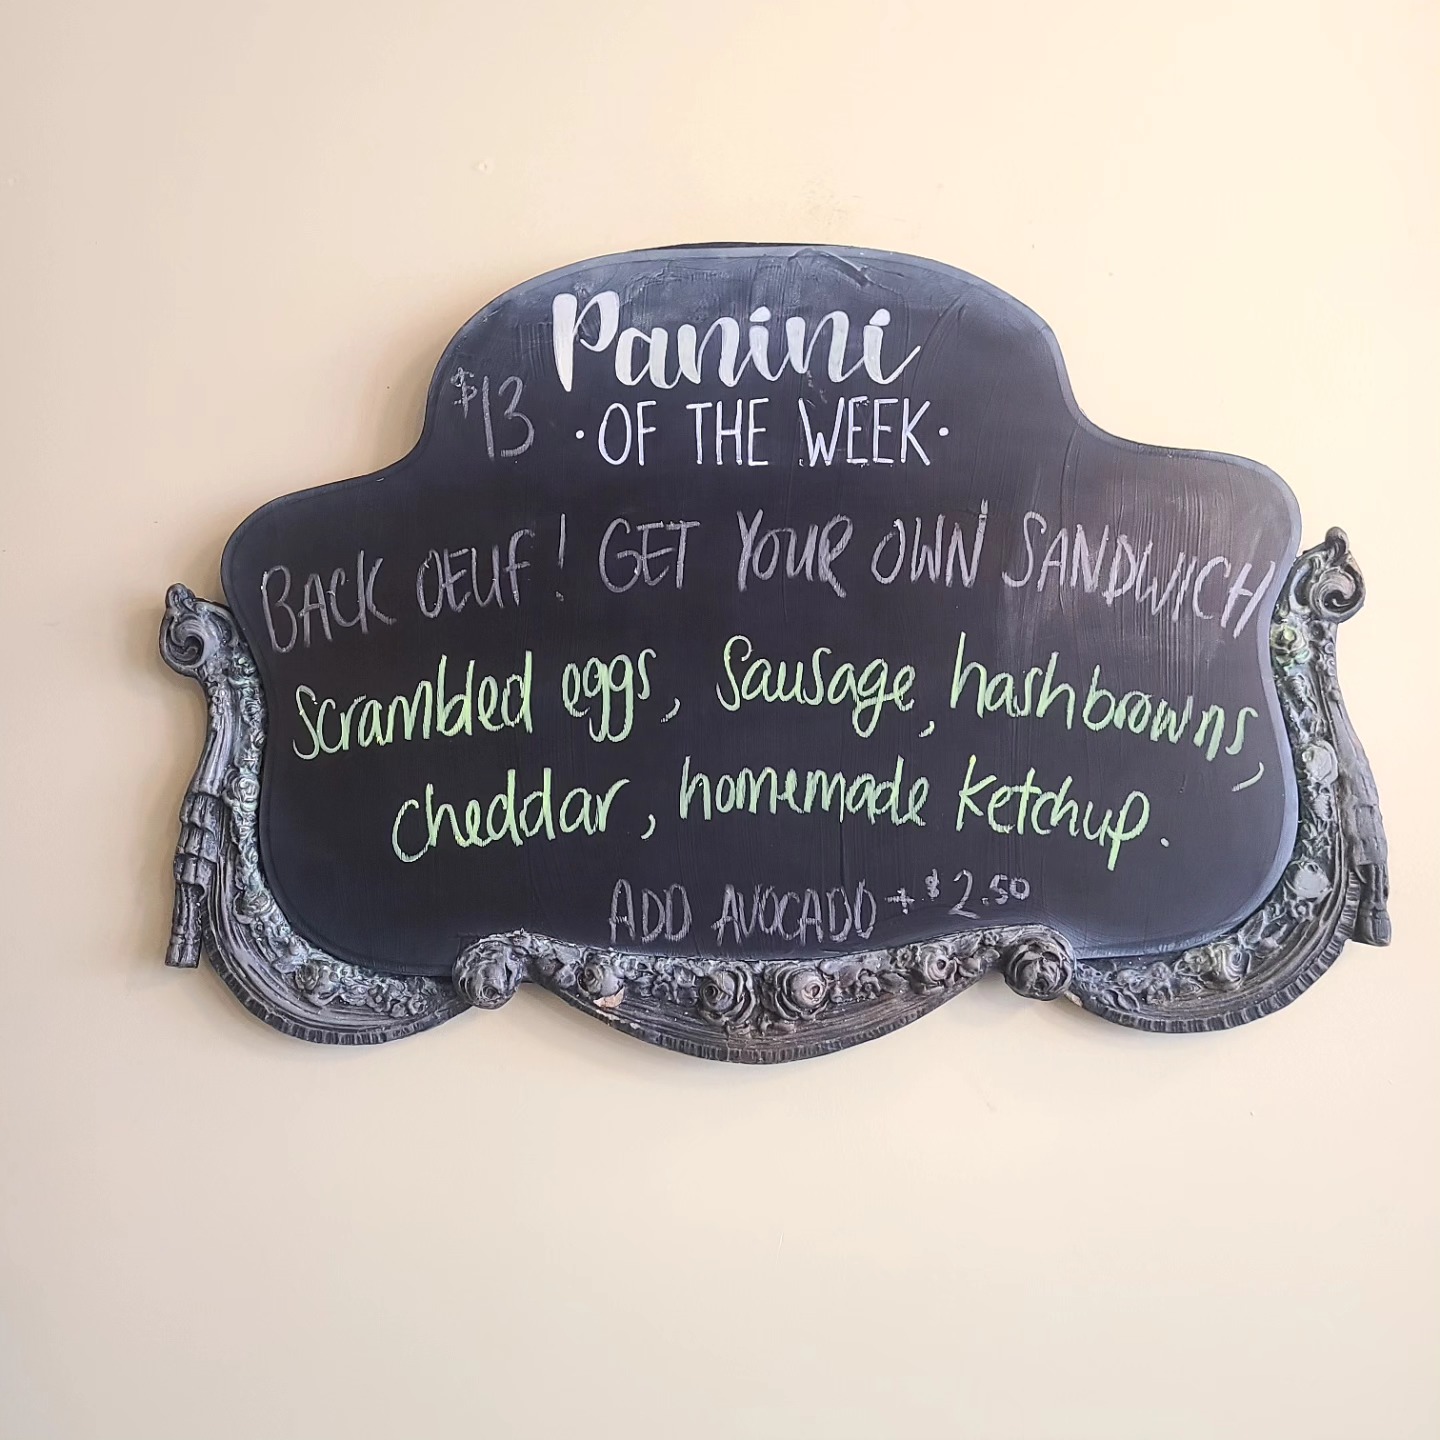 Panini
$13 ·OF THE WEEK·
BACK OEUF! GET YOUR OWN SANDWICH
Scrambled eggs, Sausage, hashbrowns,
cheddar, homemade ketchup.
ADD AVOCADO + $2.50